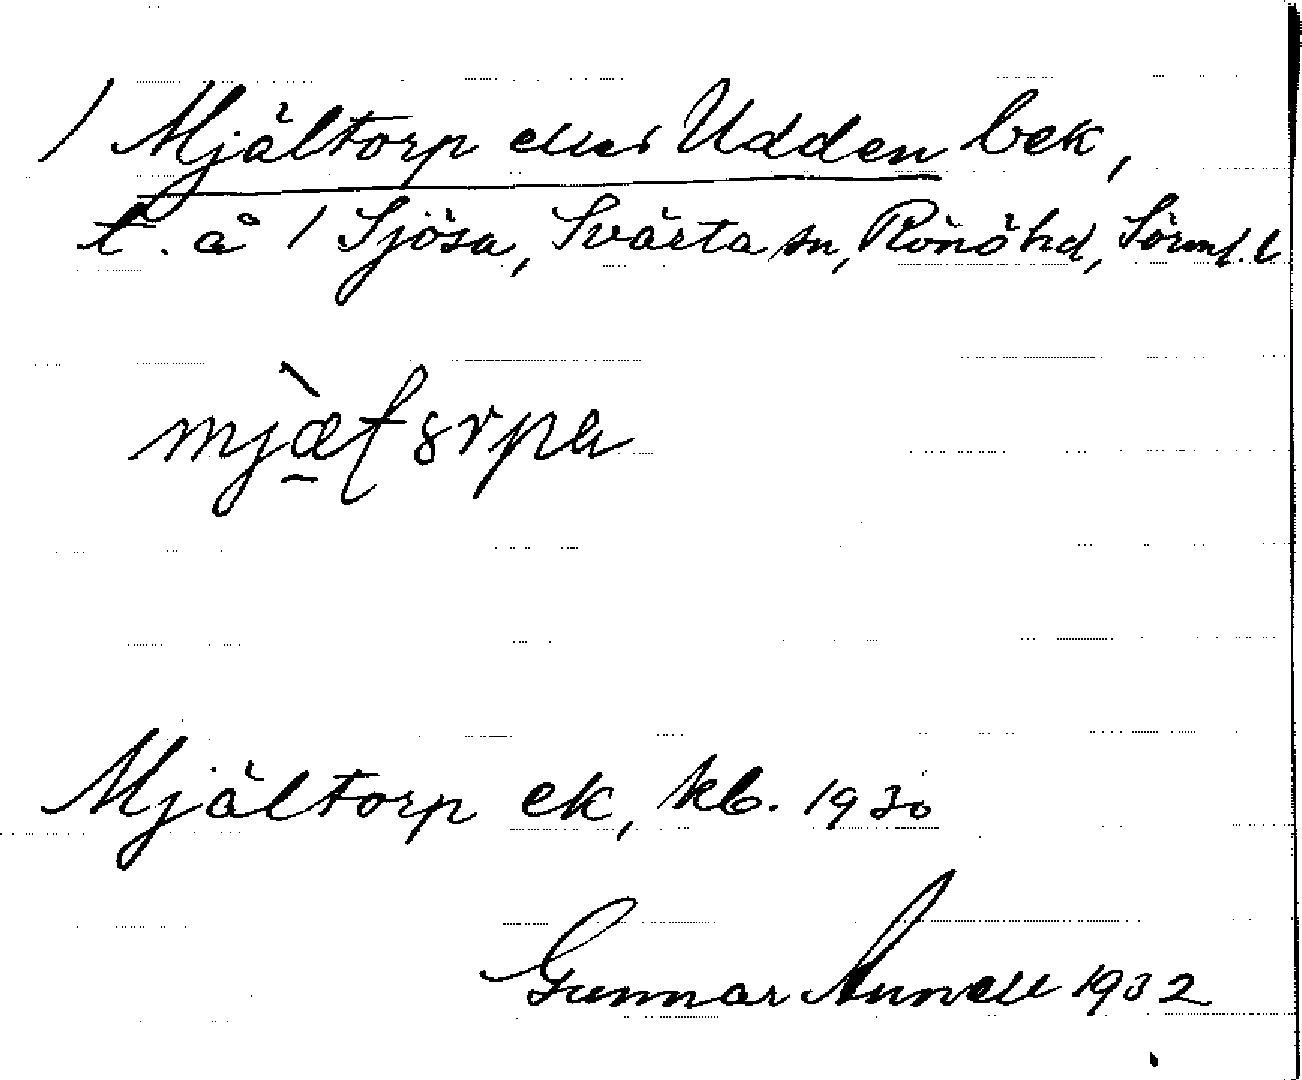 / Mjältorp eller Udden bek,
t. å / Sjösa, Svärta sn, Rönö hd, Sörml. l
Mjältorp ek, kb. 1930
Gunnar Annell 1932